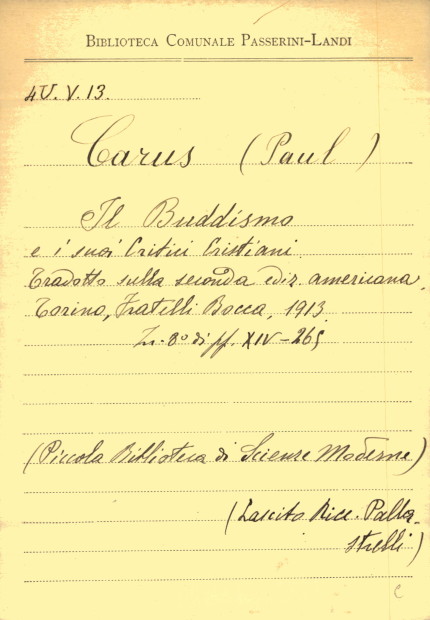 BIBLIOTECA COMUNALE PASSERINI-LANDI
4U. V. 13.
Carus (Paul)
Il Buddismo
e i suoi Critici Cristiani.
Tradotto sulla seconda ediz. americana.
Torino, Fratelli Bocca, 1913.
In-8º di pp. XIV-265
(Piccola Biblioteca di Scienze Moderne)
(Lascito Ricc. Palla-
strelli)